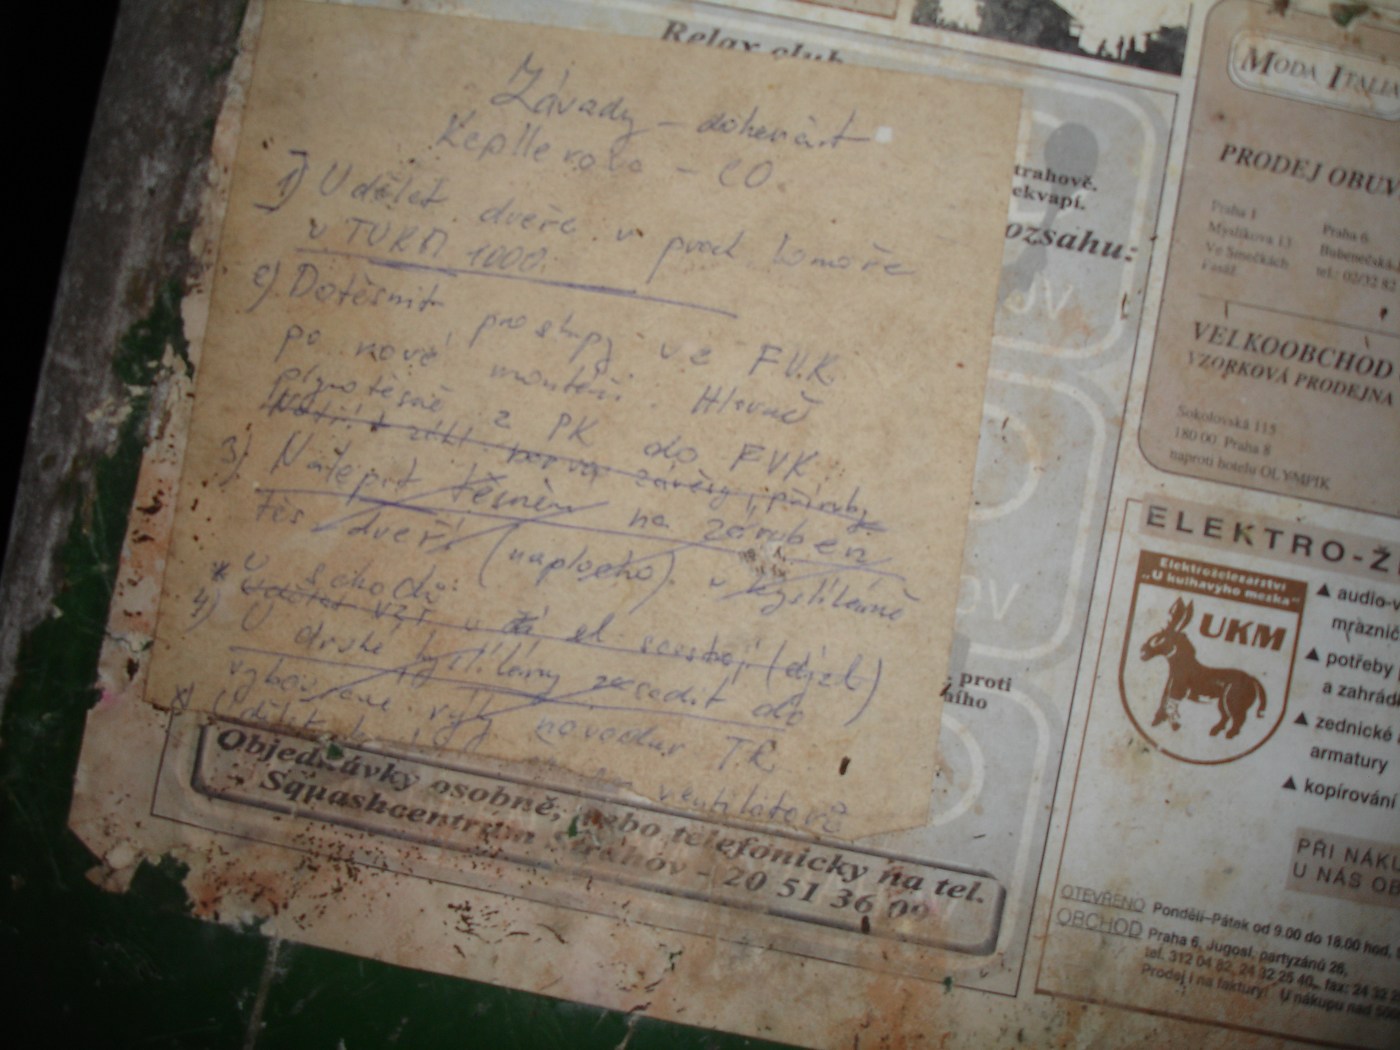 Relax club
Závady – dohenat
Kepllerova – CO.
1) Udělat dveře v prach komoře
v TURM 1000.
2) Dotěsnit prostupy ve FVK
po nové montáži. Hlavně
plynotěsně z PK do FVK
závěsy, příruby
3) Nalepit těsnění na zárubeň
těs dveří (naplocho). v kyslíkárně
u schodů.
4) Udělat vzt u el
U druhé kyslíkárny zesadit do
vybourané rýhy novodur TR
Udělat
ventilátorů
Objednávky osobně, nebo telefonicky na tel.
Squashcentrum Strahov - 20 51 36 09
trahově.
ekvapí.
ozsahu:
proti
ního
MODA ITALIA
PRODEJ OBUV
Praha 1
Myslíkova 13
Ve Smečkách
Pasáž
Praha 6
Bubenečská
tel.: 02/32 82
VELKOOBCHOD
VZORKOVÁ PRODEJNA
Sokolovská 115
180 00 Praha 8
naproti hotelu OLYMPIK
ELEKTRO-Ž
Elektroželezářství
„U kulhavýho mezka"
UKM
▲ audio-v
mraznič
▲ potřeby
a zahrádk
▲ zednické
armatury
▲ kopírování
PŘI NÁKU
U NÁS OB
OTEVŘENO Pondělí–Pátek od 9.00 do 18.00 hod.
OBCHOD Praha 6, Jugosl. partyzánů 26,
tel. 312 04 82, 24 32 25 40, fax: 24 32
Prodej i na faktury! U nákupu nad 500